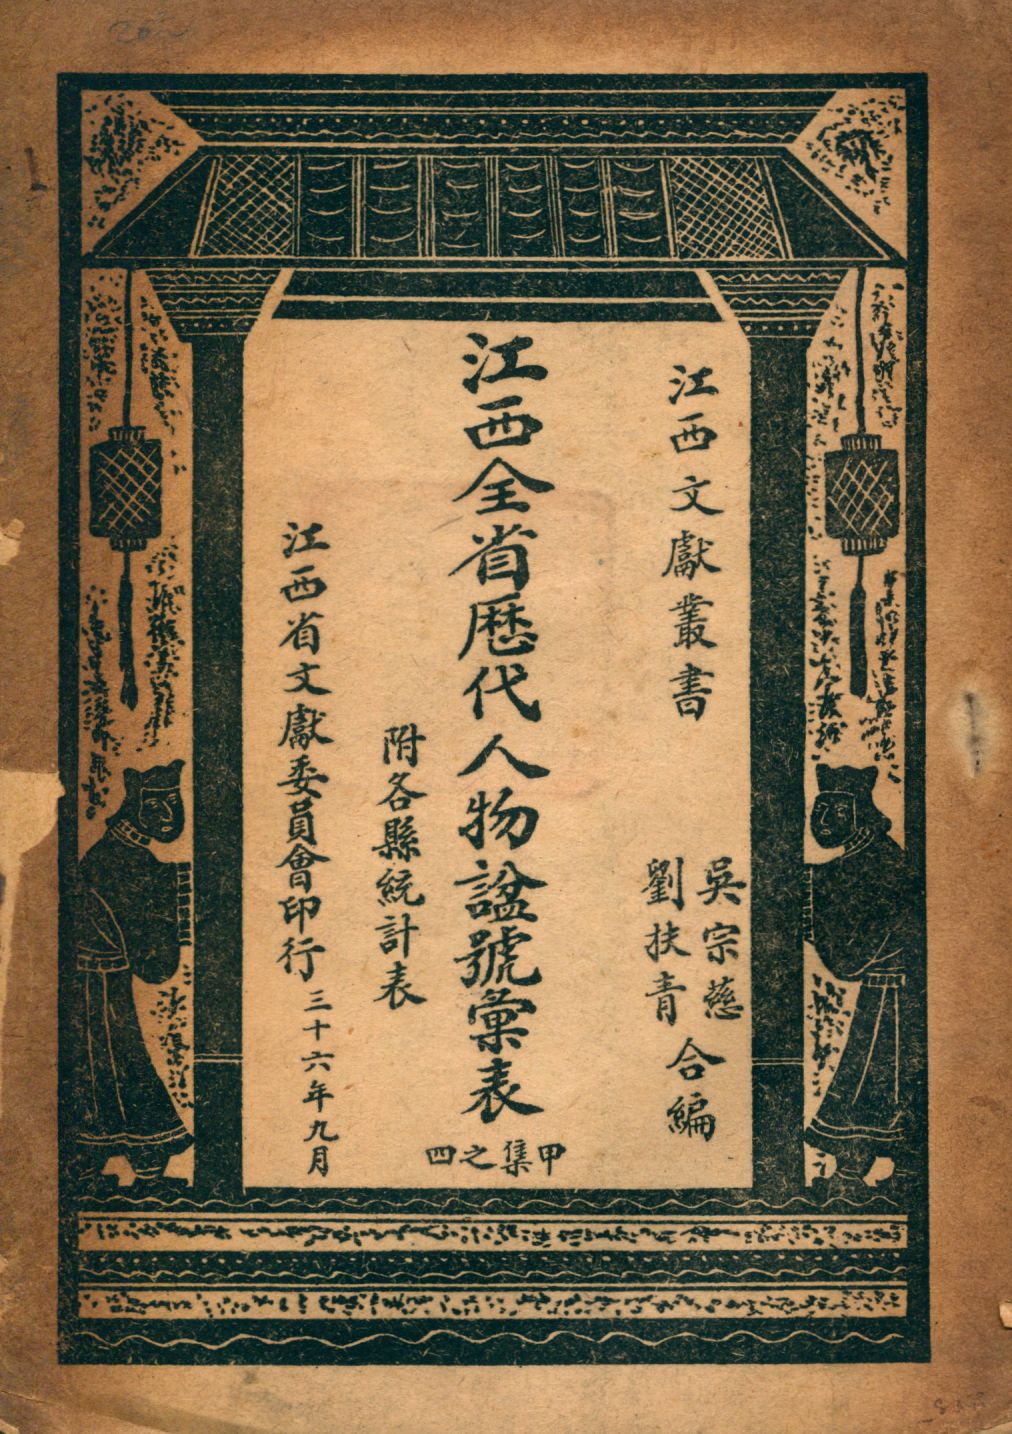 江西文獻叢書
吳宗慈
劉扶青
合編
江西全省歷代人物諡號彙表
甲集之四
附各縣統計表
江西省文獻委員會印行 三十六年九月